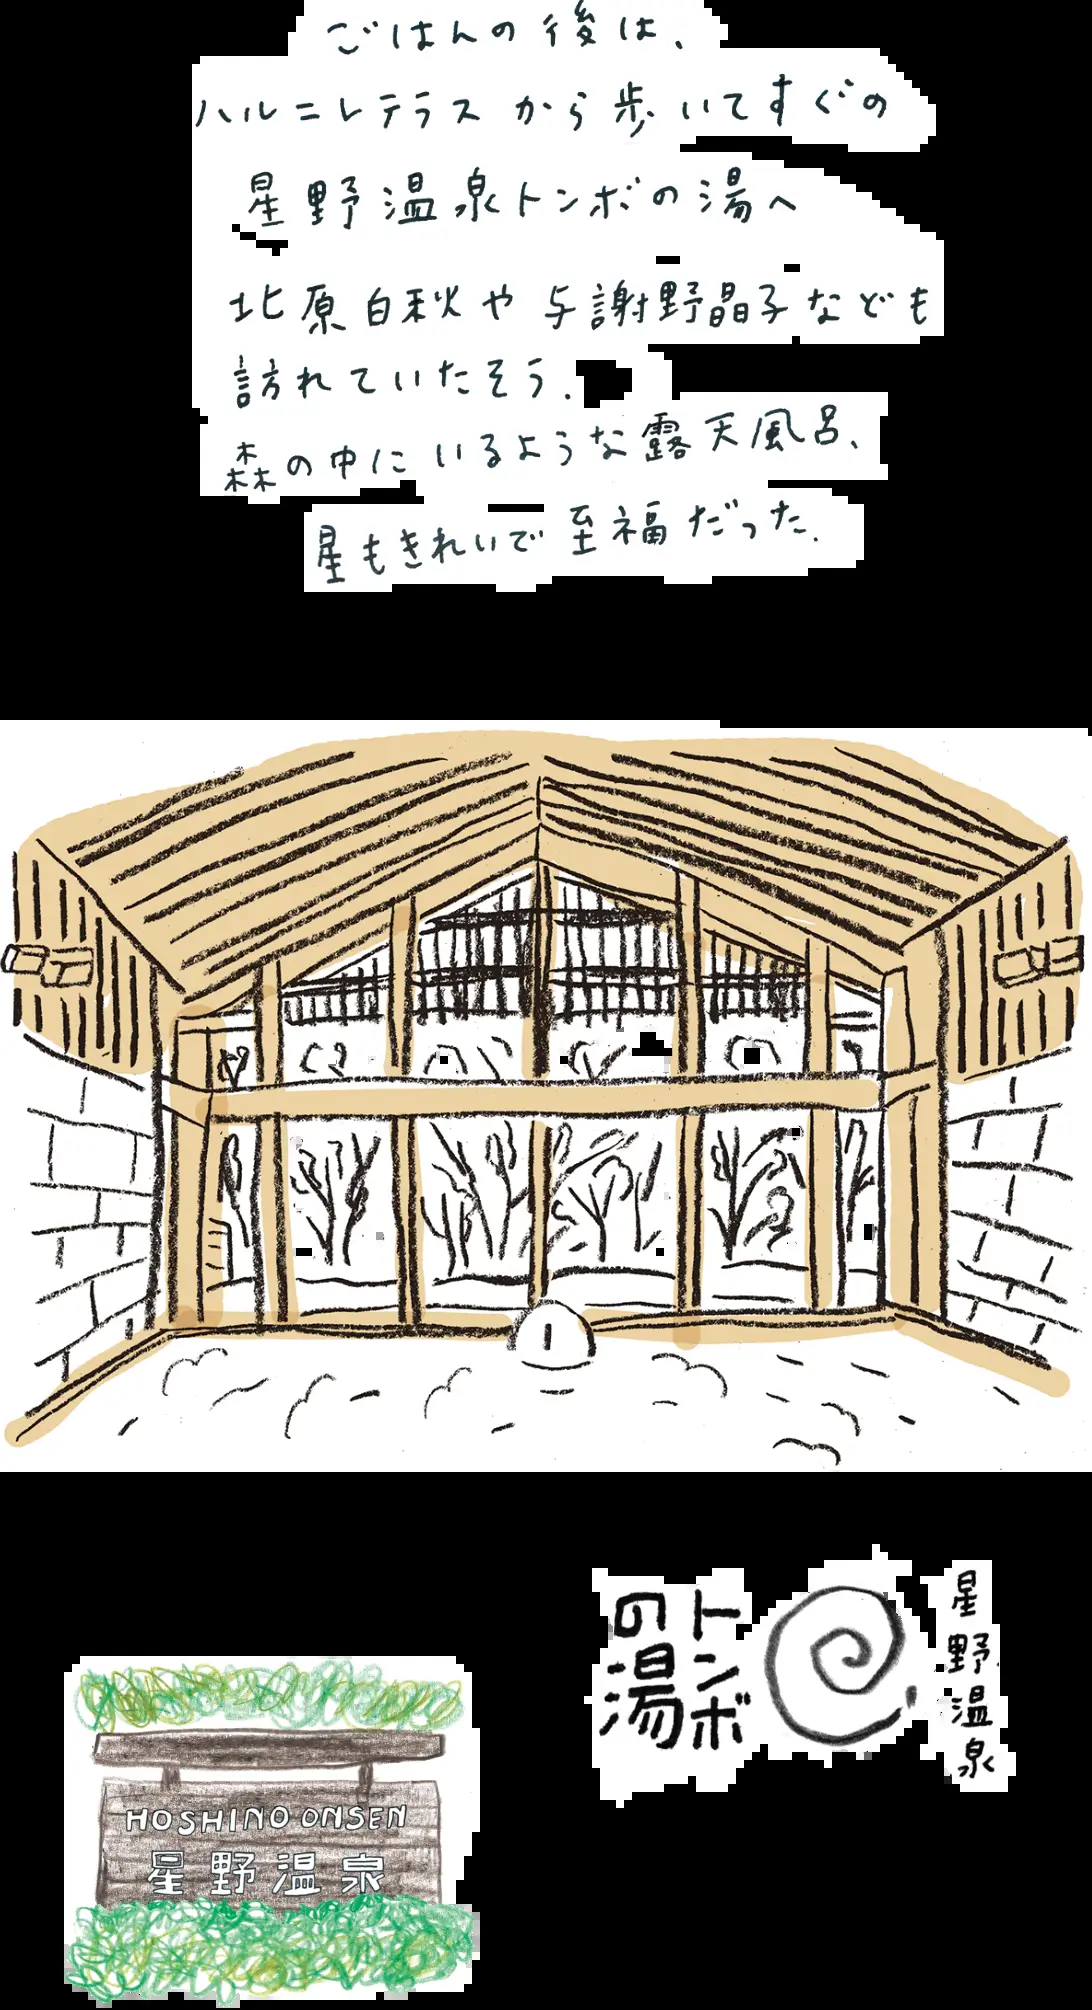 ごはんの後は、
ハルニレテラスから歩いてすぐの
星野温泉トンボの湯へ
北原白秋や与謝野晶子なども
訪れていたそう.
森の中にいるような露天風呂、
星もきれいで至福だった.
星野温泉
トンボ
の湯
HOSHINO ONSEN
星野温泉